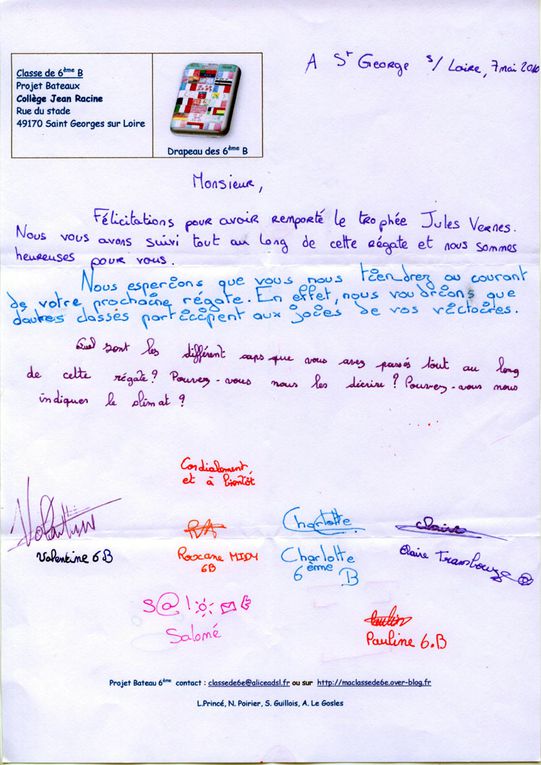 A St George s/ Loire, 7 mai 2010
Classe de 6ème B
Projet Bateaux
Collège Jean Racine
Rue du stade
49170 Saint Georges sur Loire
Drapeau des 6ème B
Monsieur,
Félicitations pour avoir remporté le trophée Jules Vernes.
Nous vous avons suivi tout au long de cette régate et nous sommes
heureuses pour vous.
Nous esperions que vous nous tiendrez au courant
de votre prochaine régate. En effet, nous voudrions que
d'autres classes participent aux joies de vos victoires.
Quel sont les différent caps que vous avez passés tout au long
de cette régate? Pouvez-vous nous les décrire? Pouvez-vous nous
indiquer le climat?
Cordialement
et à bientôt
Valentine RM Charlotte Claire
Valentine 6B Roxane MIDY Charlotte Claire Trambouze
6B 6ème B
S@l
Salomé
Pauline 6.B
Projet Bateau 6ème contact : classede6e@aliceadsl.fr ou sur http://maclassede6e.over-blog.fr
L.Princé, N. Poirier, S. Guillois, A. Le Gosles